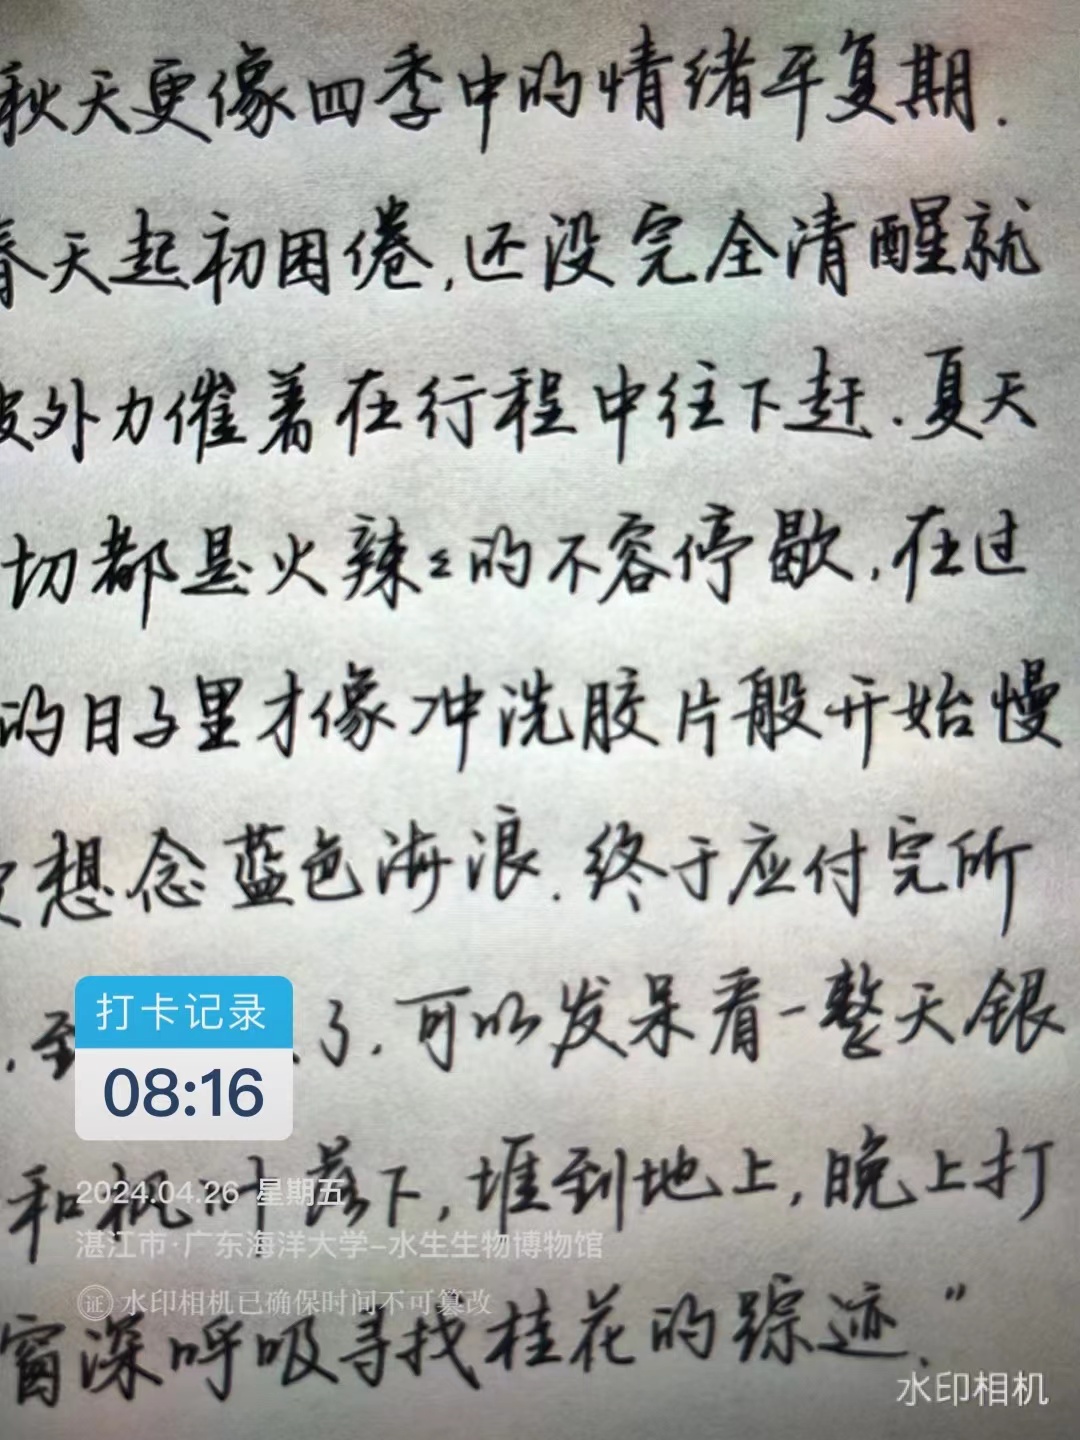 秋天更像四季中的情绪平复期.
春天起初困倦,还没完全清醒就
被外力催着在行程中往下赶.夏天
切都是火辣々的不容停歇,在过
的日子里才像冲洗胶片般开始慢
想念蓝色海浪.终于应付完所
了.可以发呆看一整天银
和枫叶落下,堆到地上,晚上打
窗深呼吸寻找桂花的踪迹."
打卡记录
08:16
2024.04.26 星期五
湛江市·广东海洋大学-水生生物博物馆
证 水印相机已确保时间不可篡改
水印相机